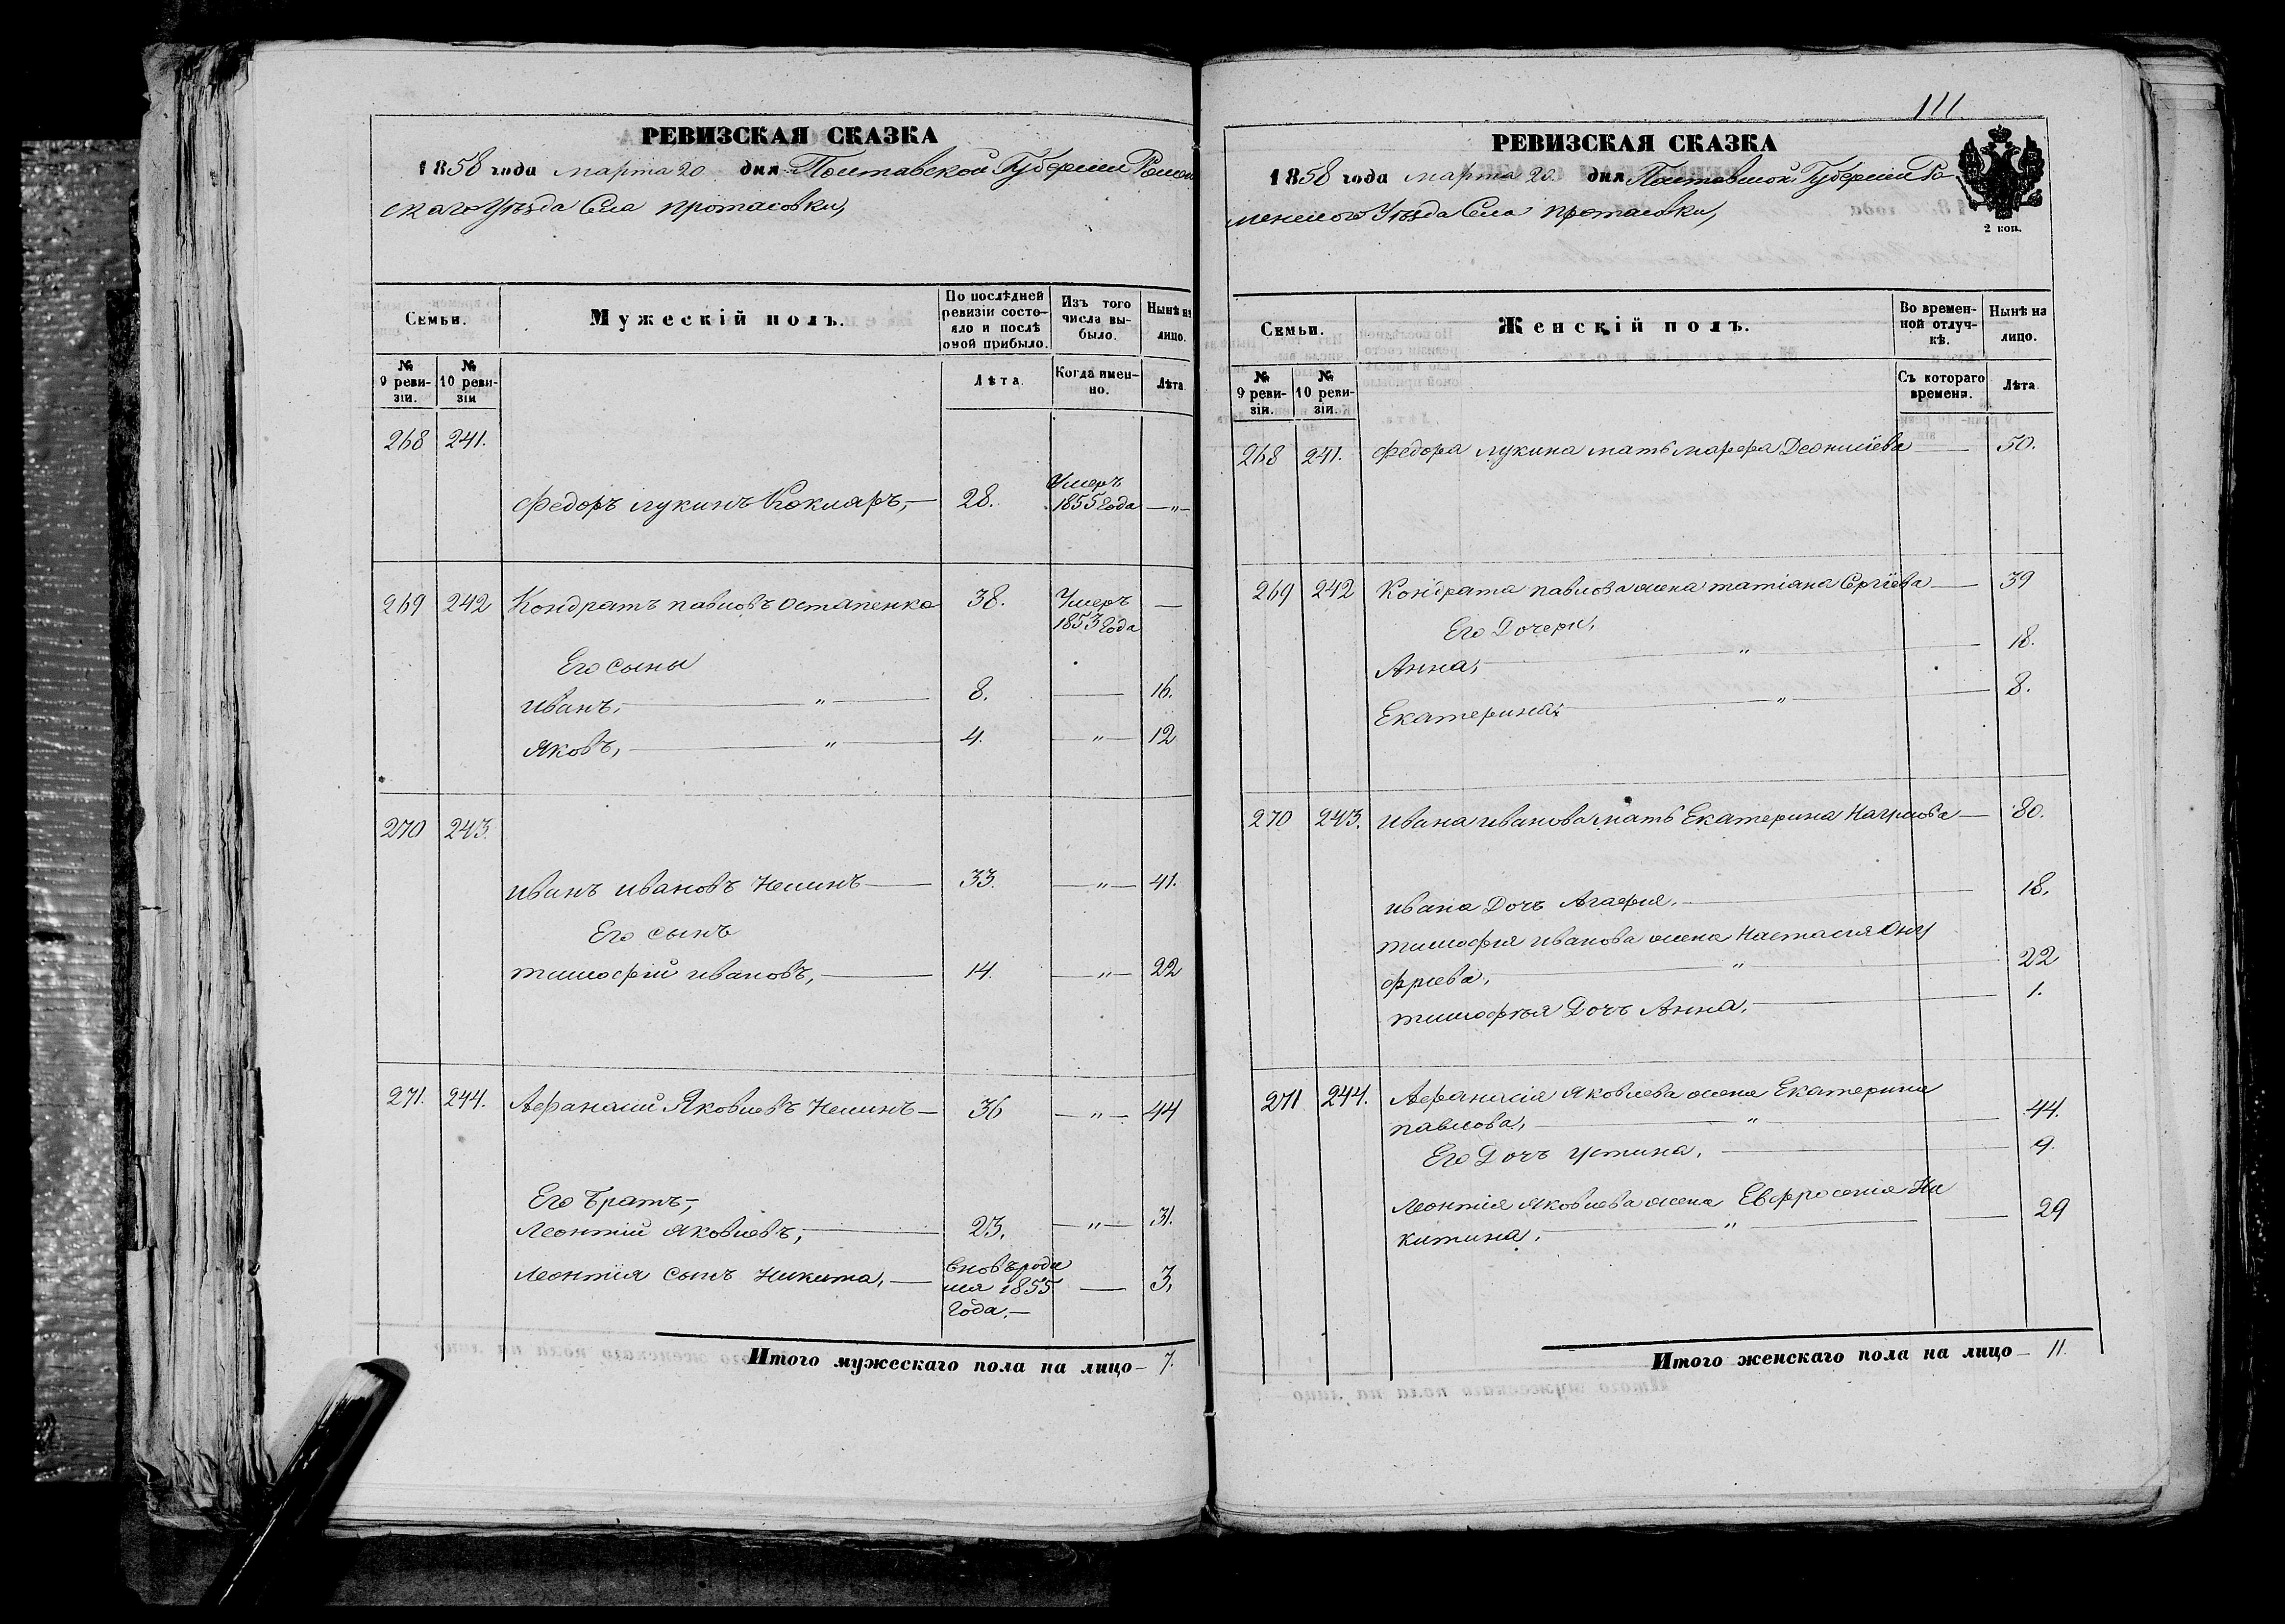 РЕВИЗСКАЯ СКАЗКА
1858 года марта 20 дня Полтавской Губернии Ромен
скаго Уѣзда Села протасовки,
Семьи.
Мужескій полъ.
По послѣдней ревизіи состояло и послѣ оной прибыло.
Изъ того числа выбыло.
Нынѣ на лицо.
№ 9 ревизіи.
№ 10 ревизіи
Лѣта.
Когда именно.
Лѣта.
268 241.
Федоръ лукинъ Кокляръ, 28. Умеръ 1855 Года — „ —
269 242 Кондратъ павловъ Остапенко 38. Умеръ 1853 Года —
Его сыны
иванъ, „ 8. — 16.
яковъ, „ 4. — „ — 12
270 243.
иванъ ивановъ Нешинъ — 33. — „ — 41.
Его сынъ
тимофій ивановъ, — 14. — „ — 22
271. 244. Афанасій Яковлевъ Нешинъ — 36 — „ — 44
Его Братъ,
Леонтій яковлевъ, — 23. — „ — 31.
Леонтія сынъ Никита, — вновърод 1855 Года. — 3,
Итого мужескаго пола на лицо — 7.
111.
РЕВИЗСКАЯ СКАЗКА
1858 года марта 20 дня Полтавской Губернии Ро-
менского Уѣзда Села протасовки,
2 коп.
Семьи.
Женскій полъ.
Во временной отлучкѣ.
Нынѣ на лицо.
№ 9 ревизіи.
№ 10 ревизіи.
Съ котораго времени.
Лѣта.
268 241. Федора лукина мать марфа Деонисіева — 50.
269 242 Кондрата павлова жена татіана Сергіева — 39
Его Дочери,
Анна, „ 18.
Екатерина, „ 8.
270 243. ивана иванова мать Екатерина Наумова — 80.
ивана Дочъ Агафия. — 18.
тимофія иванова жена Настасия Ону
фриева, „ 22
тимофѣя Дочъ Анна, — 1.
271 244. Афанасія яковлева жена Екатерина
павлова, „ 44.
Его Дочъ устина, — 9.
Леонтія яковлева жена Евфросенія Ни
китина, „ — 29
Итого женскаго пола на лицо — 11.